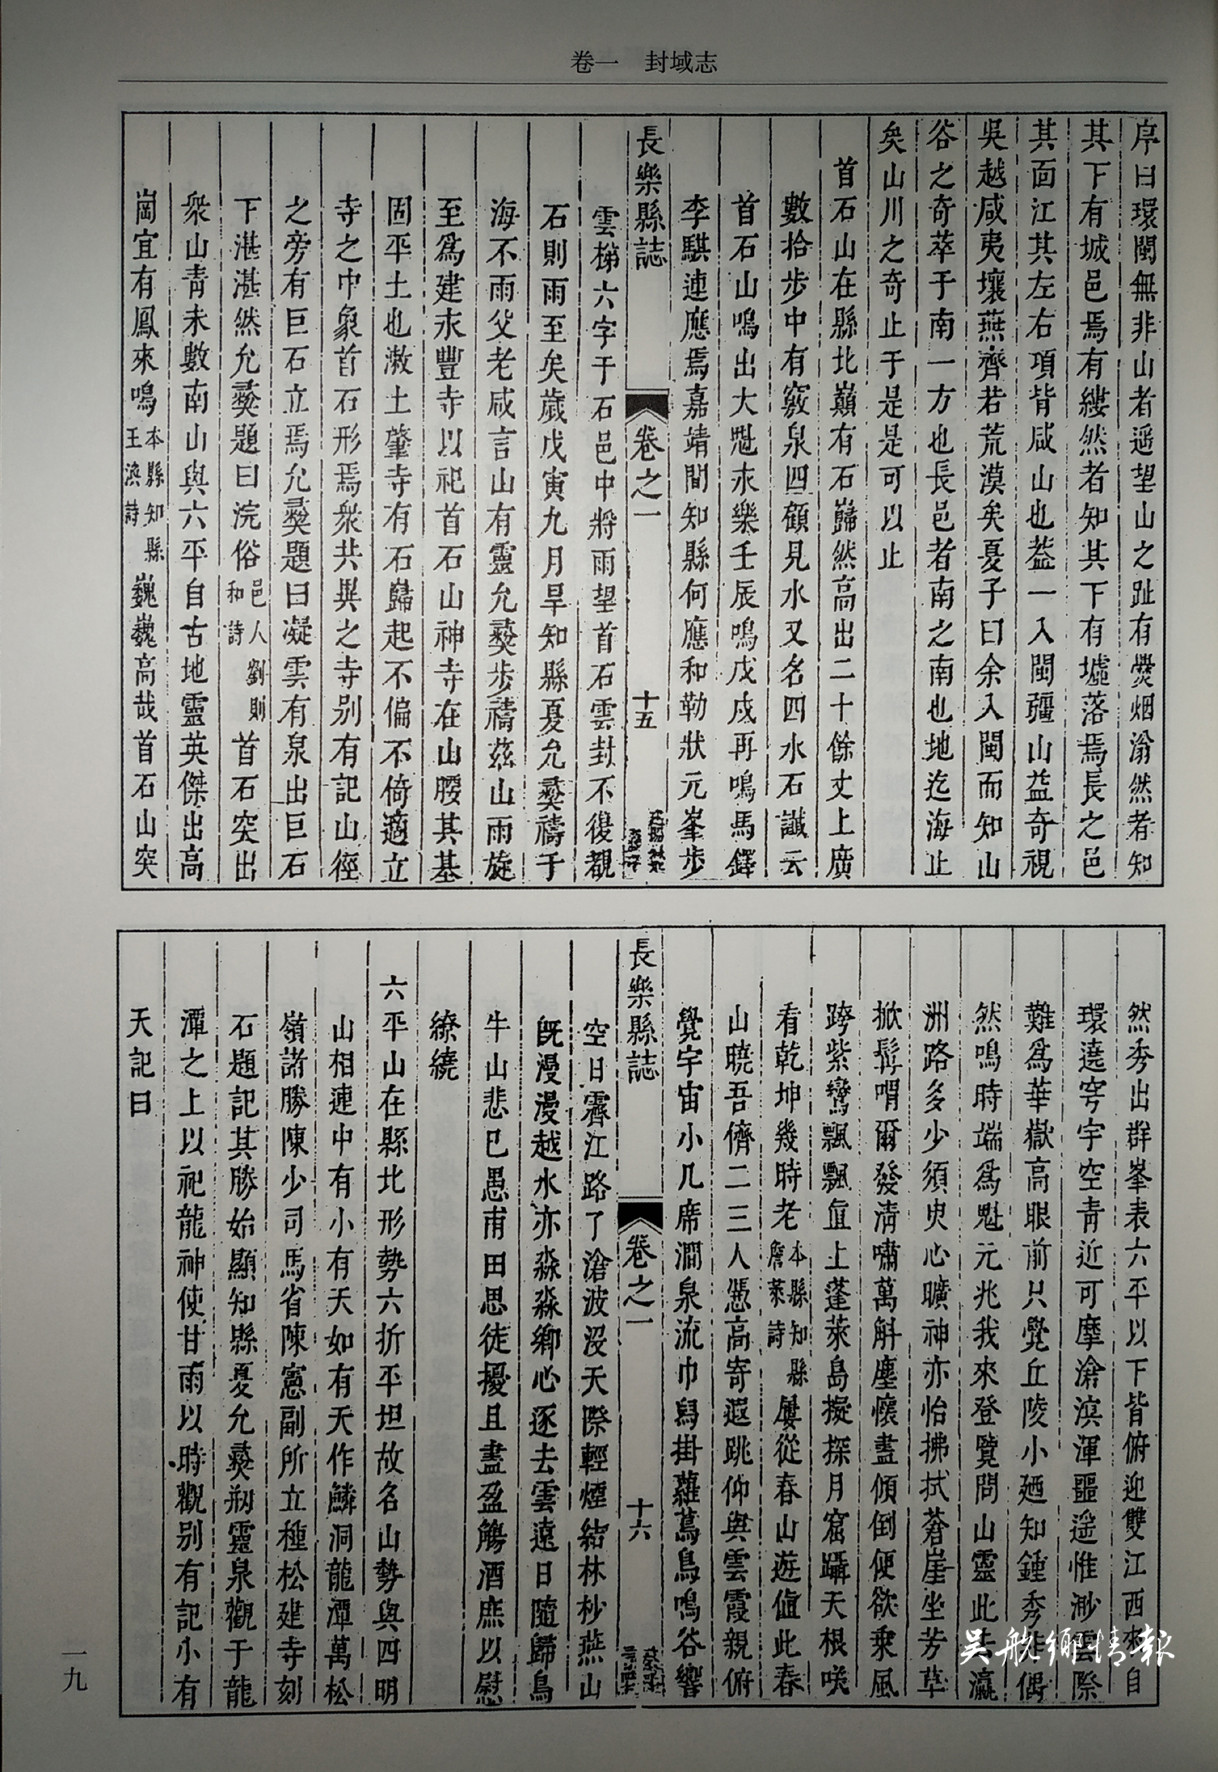 卷一　封域志
序曰環閩無非山者遥望山之趾有爨烟滃然者知
其下有城邑焉有縷然者知其下有墟落焉長之邑
其面江其左右項背咸山也葢一入閩疆山益奇視
吳越咸夷壤燕齊若荒漠矣夏子曰余入閩而知山
谷之奇萃于南一方也長邑者南之南也地迄海止
矣山川之奇止于是是可以止
首石山在縣北巔有石巋然高出二十餘丈上廣
數拾步中有竅泉四顧見水又名四水石讖云
首石山鳴出大魁永樂壬辰鳴戊戌再鳴馬鐸
李騏連應焉嘉靖間知縣何應和勒狀元峯步
長樂縣誌　卷之一　十五
雲梯六字于石邑中將雨望首石雲封不復覩
石則雨至矣歲戊寅九月旱知縣夏允彝禱于
海不雨父老咸言山有靈允彝步禱兹山雨旋
至爲建永豐寺以祀首石山神寺在山腰其基
固平土也漵土肇寺有石巋起不偏不倚適立
寺之中象首石形焉衆共異之寺别有記山徑
之旁有巨石立焉允彝題曰凝雲有泉出巨石
下湛湛然允彝題曰浣俗邑人劉則和詩首石突出
衆山青未數南山與六平自古地靈英傑出高
崗宜有鳳來鳴本縣知縣王渙詩巍巍高哉首石山突
然秀出群峯表六平以下皆俯迎雙江西來自
環遶穹宇空青近可摩滄溟渾噩遥惟渺雲際
難爲華嶽高眼前只覺丘陵小廼知鍾秀非偶
然鳴時端爲魁元兆我來登覽問山靈此去瀛
洲路多少須臾心曠神亦怡拂拭蒼崖坐芳草
掀髯喟爾發清嘯萬斛塵懷盡傾倒便欲乘風
跨紫鸞飄飄直上蓬萊島擬探月窟躡天根咲
看乾坤幾時老本縣知縣詹萊詩屢從春山遊値此春
山曉吾儕二三人憑高寄遐眺仰與雲霞親俯
覺宇宙小几席澗泉流巾舄掛蘿蔦鳥鳴谷響
長樂縣誌　卷之一　十六
空日霽江路了滄波沒天際輕煙結林杪燕山
旣漫漫越水亦淼淼鄉心逐去雲遠日隨歸鳥
牛山悲已愚甫田思徒擾且盡盈觴酒庶以慰
繚繞
六平山在縣北形勢六折平坦故名山勢與四明
山相連中有小有天如有天作鱗洞龍潭萬松
嶺諸勝陳少司馬省陳憲副所立種松建寺刻
石題記其勝始顯知縣夏允彝剏靈泉觀于龍
潭之上以祀龍神使甘雨以時觀别有記小有
天記曰
一九
吴航鄉情報